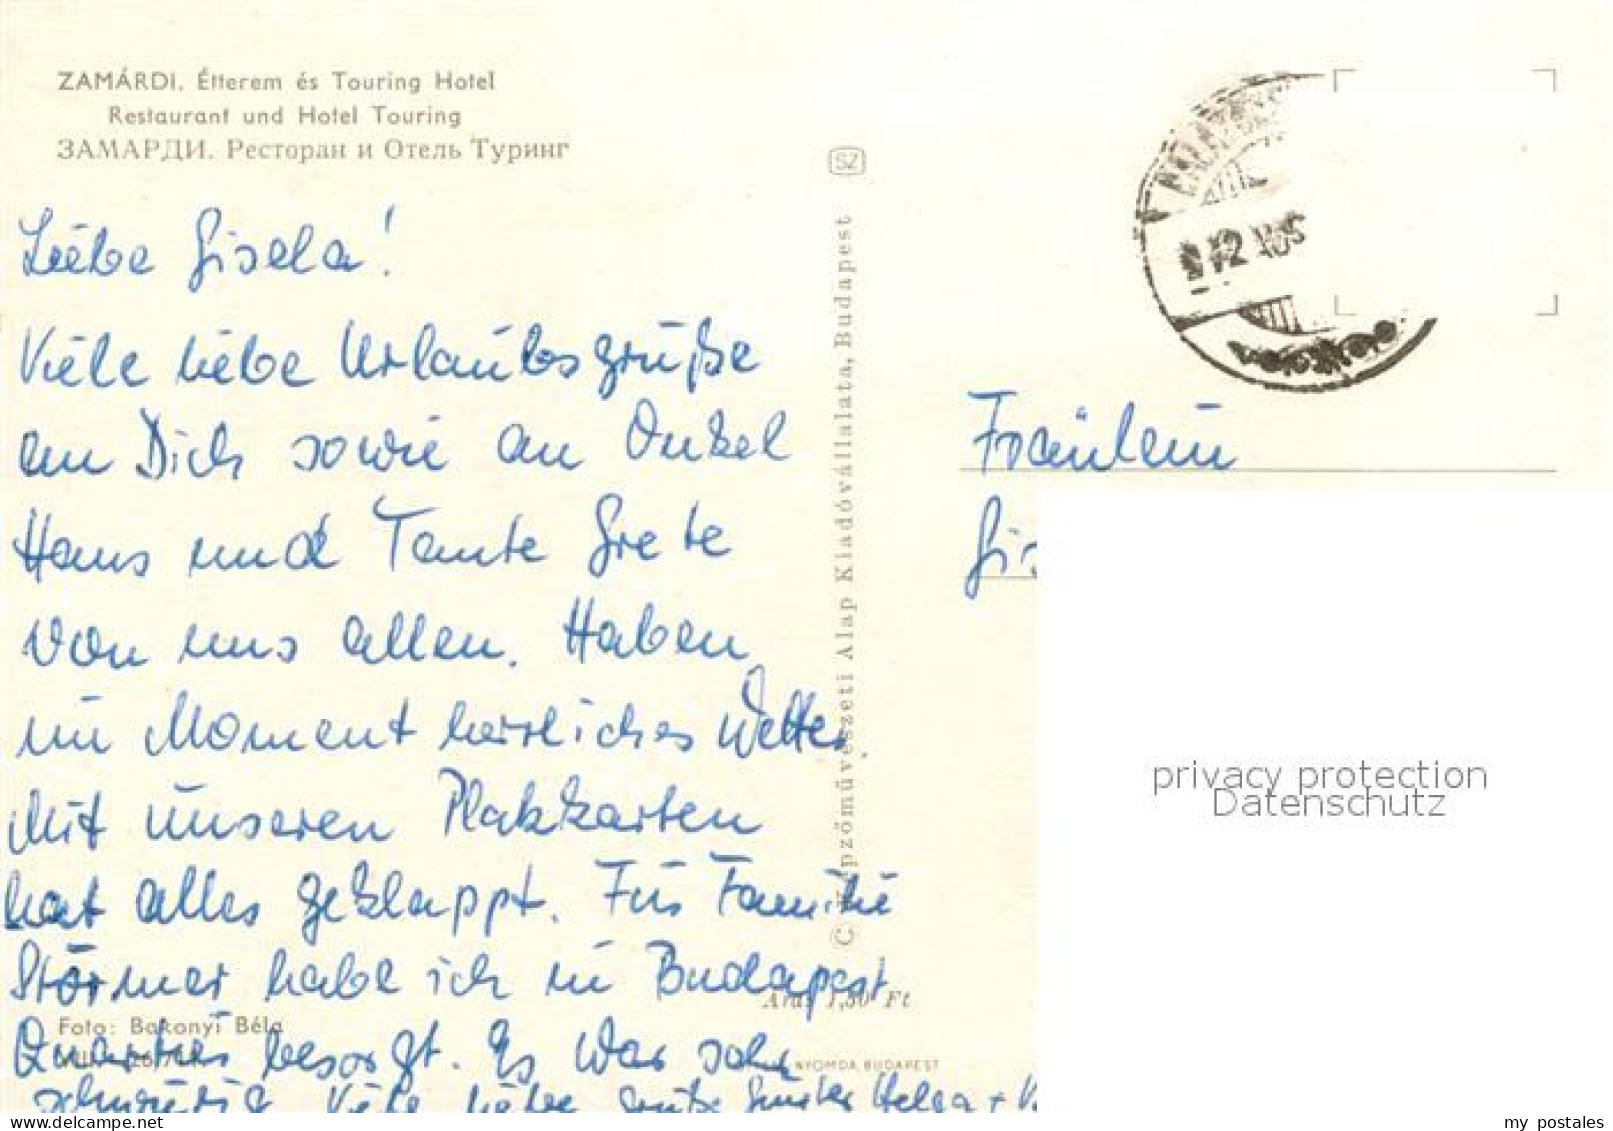 ZAMÁRDI. Étterem és Touring Hotel
Restaurant und Hotel Touring
ЗАМАРДИ. Ресторан и Отель Туринг
Liebe Gisela!
Viele liebe Urlaubsgrüße
an Dich sowie an Onkel
Hans und Tante Grete
von uns allen. Haben
im Moment herrliches Wetter.
Mit unseren Platzkarten
hat alles geklappt. Für Familie
Störmer habe ich in Budapest
Quartier besorgt. Es war sehr
schwierig. Viele liebe Grüße Günter Helga +
Foto: Bakonyi Béla
Ára: 1,50 Ft
NYOMDA, BUDAPEST
SZ
Képzőművészeti Alap Kiadóvállalata, Budapest
72
Fräulein
Gis
privacy protection
Datenschutz
delcampe.net
my_postales